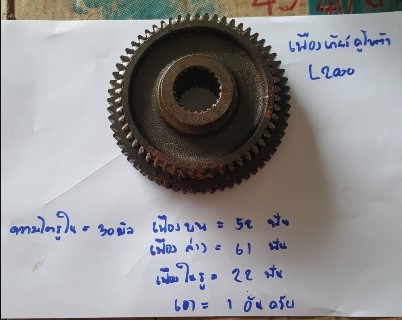 เฟืองเกียร์ คูโบต้า
L2000
ความโตรูใน = 30 มิล
เฟืองบน = 52 ฟัน
เฟืองล่าง = 61 ฟัน
เฟืองในรู = 22 ฟัน
เอา = 1 อันครับ